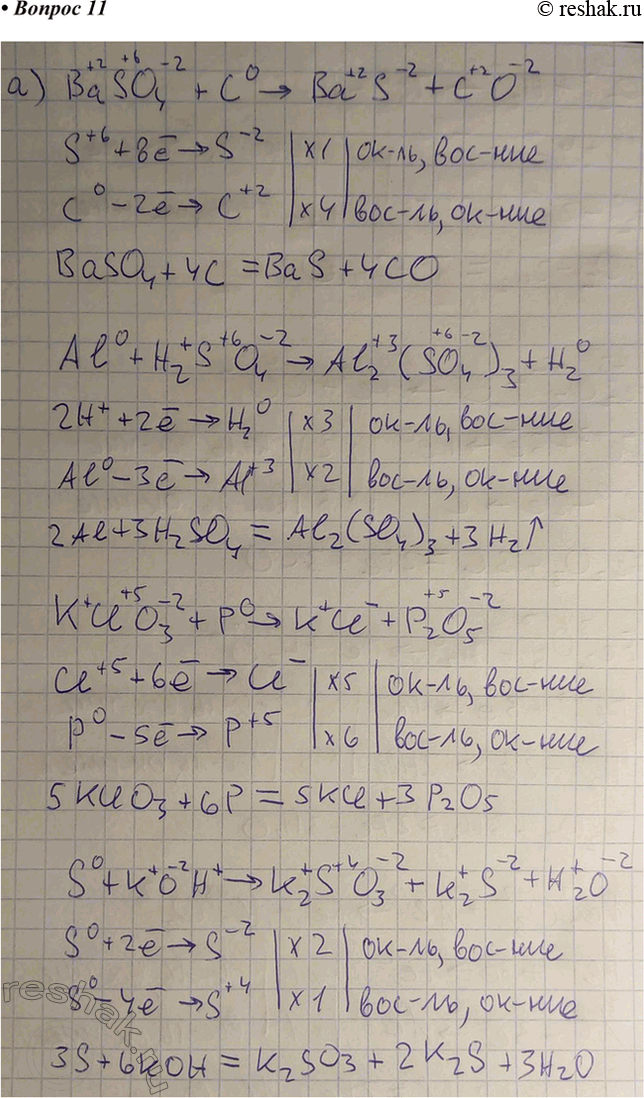 • Вопрос 11
© reshak.ru
а) Ba⁺²S⁺⁶O₄⁻² + C⁰ → Ba⁺²S⁻² + C⁺²O⁻²
S⁺⁶ + 8ē → S⁻² | x1 | ок-ль, вос-ние
C⁰ - 2ē → C⁺² | x4 | вос-ль, ок-ние
BaSO₄ + 4C = BaS + 4CO
Al⁰ + H₂⁺S⁺⁶O₄⁻² → Al₂⁺³(S⁺⁶O₄⁻²)₃ + H₂⁰
2H⁺ + 2ē → H₂⁰ | x3 | ок-ль, вос-ние
Al⁰ - 3ē → Al⁺³ | x2 | вос-ль, ок-ние
2Al + 3H₂SO₄ = Al₂(SO₄)₃ + 3H₂↑
K⁺Cl⁺⁵O₃⁻² + P⁰ → K⁺Cl⁻ + P₂⁺⁵O₅⁻²
Cl⁺⁵ + 6ē → Cl⁻ | x5 | ок-ль, вос-ние
P⁰ - 5ē → P⁺⁵ | x6 | вос-ль, ок-ние
5KClO₃ + 6P = 5KCl + 3P₂O₅
S⁰ + K⁺O⁻²H⁺ → K₂⁺S⁺⁴O₃⁻² + K₂⁺S⁻² + H₂⁺O⁻²
S⁰ + 2ē → S⁻² | x2 | ок-ль, вос-ние
S⁰ - 4ē → S⁺⁴ | x1 | вос-ль, ок-ние
3S + 6KOH = K₂SO₃ + 2K₂S + 3H₂O
reshak.ru